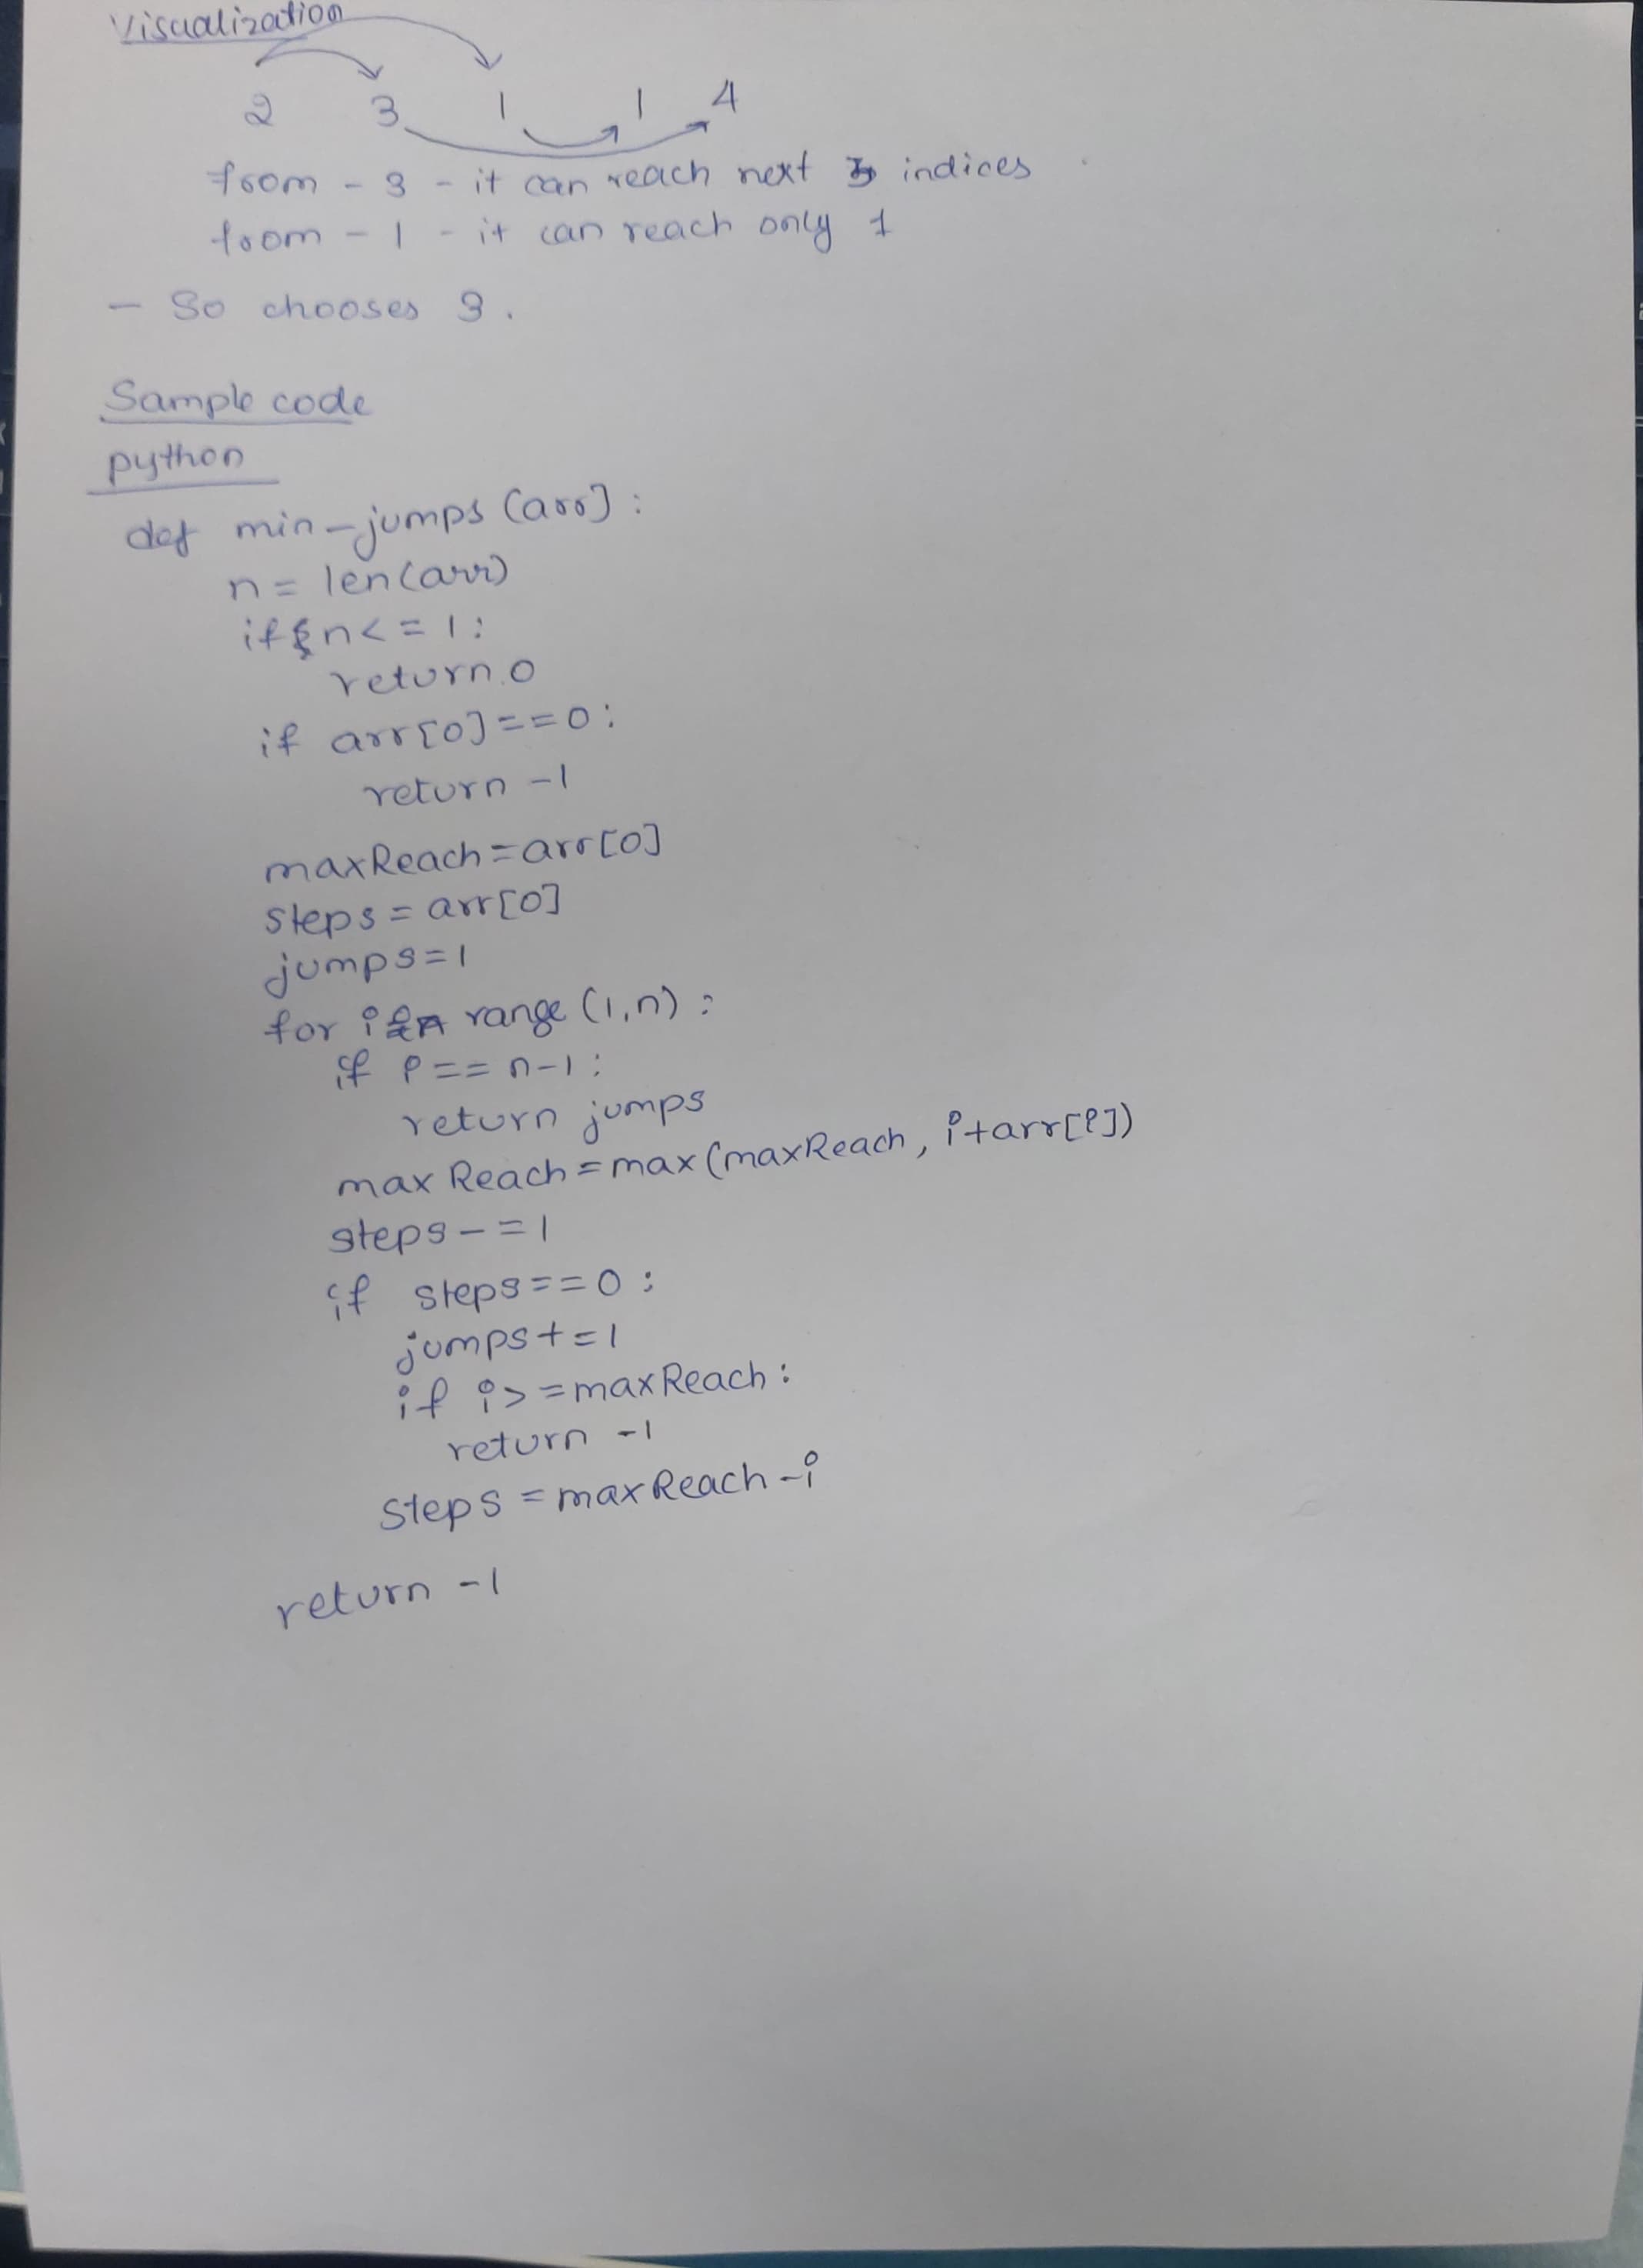 Visualization
2 3 1 1 4
from - 3 - it can reach next 3 indices
from - 1 - it can reach only 1
- So chooses 3.
Sample code
python
def min-jumps (arr]:
n = len(arr)
if n<=1:
return 0
if arr[0]==0:
return -1
maxReach=arr[0]
steps=arr[0]
jumps=1
for i in range(1,n):
if i==n-1:
return jumps
maxReach=max(maxReach, i+arr[i])
steps-=1
if steps==0:
jumps+=1
if i>=maxReach:
return -1
steps=maxReach-i
return -1